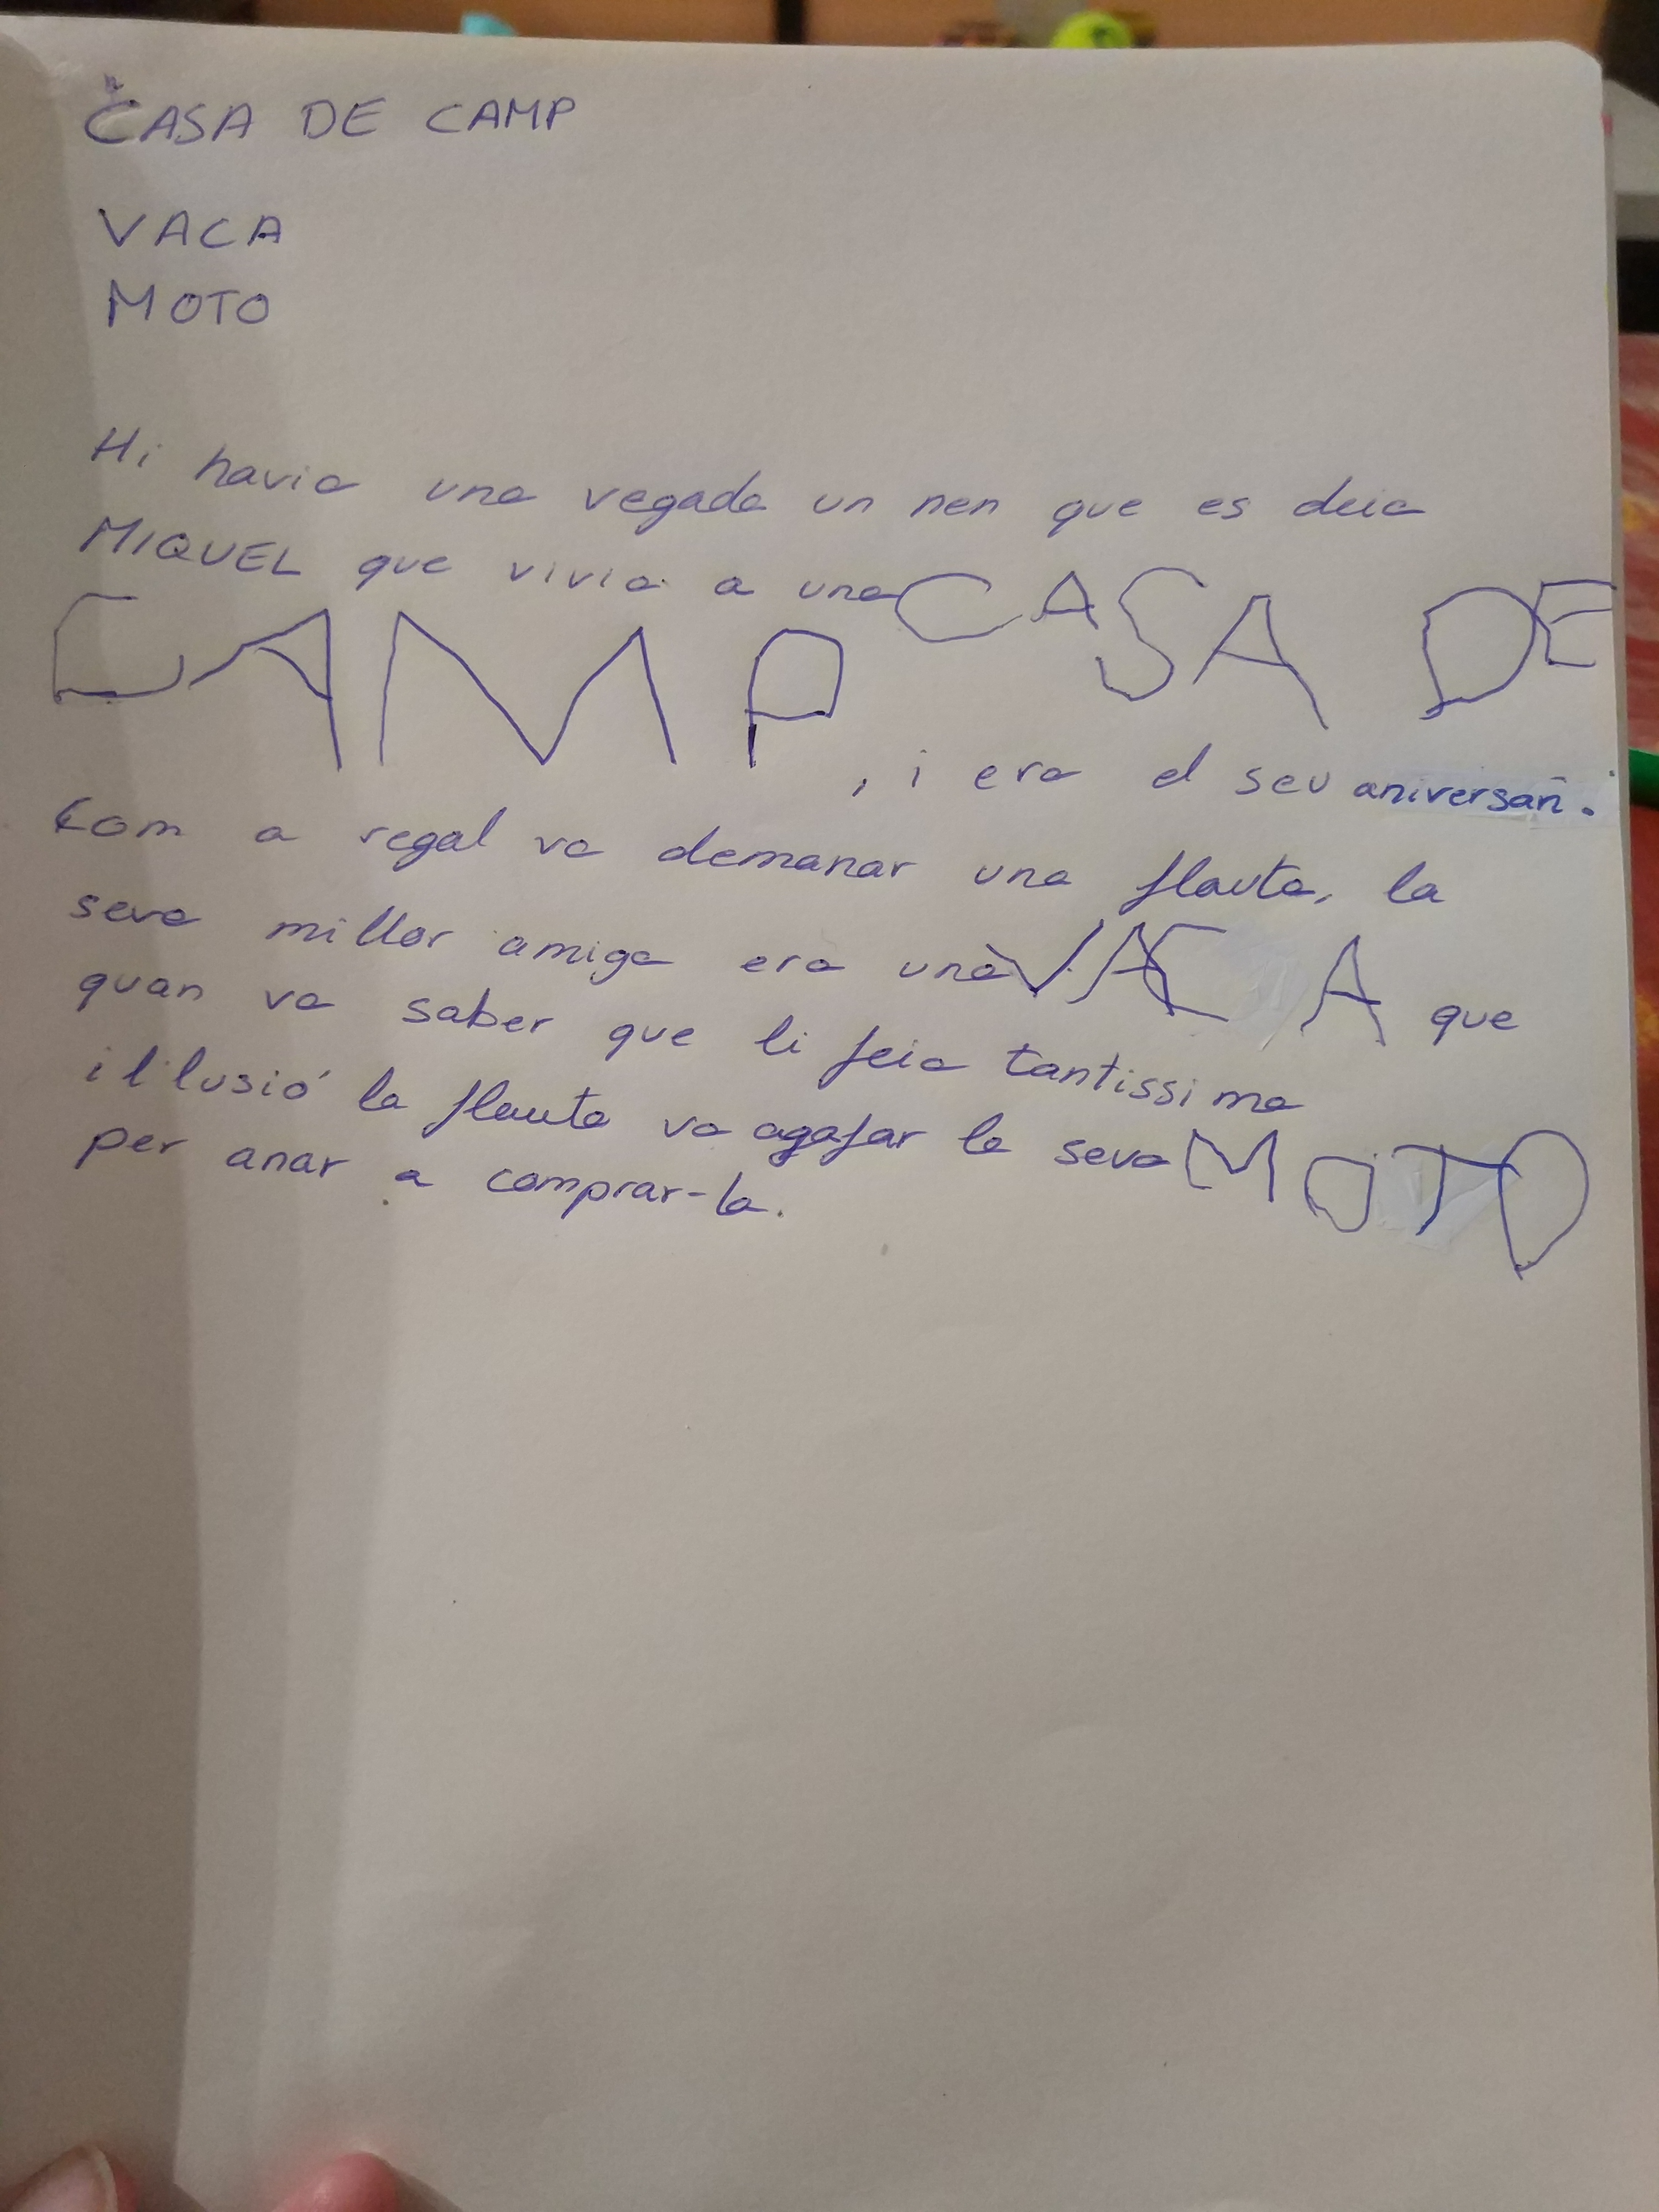 CASA DE CAMP
VACA
MOTO
Hi havia una vegada un nen que es deia
MIQUEL que vivia a una CASA DE
CAMP, i era el seu aniversari.
Com a regal va demanar una flauta, la
seva millor amiga era una VACA que
quan va saber que li feia tantissima
il·lusió la flauta va agafar la seva MOTO
per anar a comprar-la.